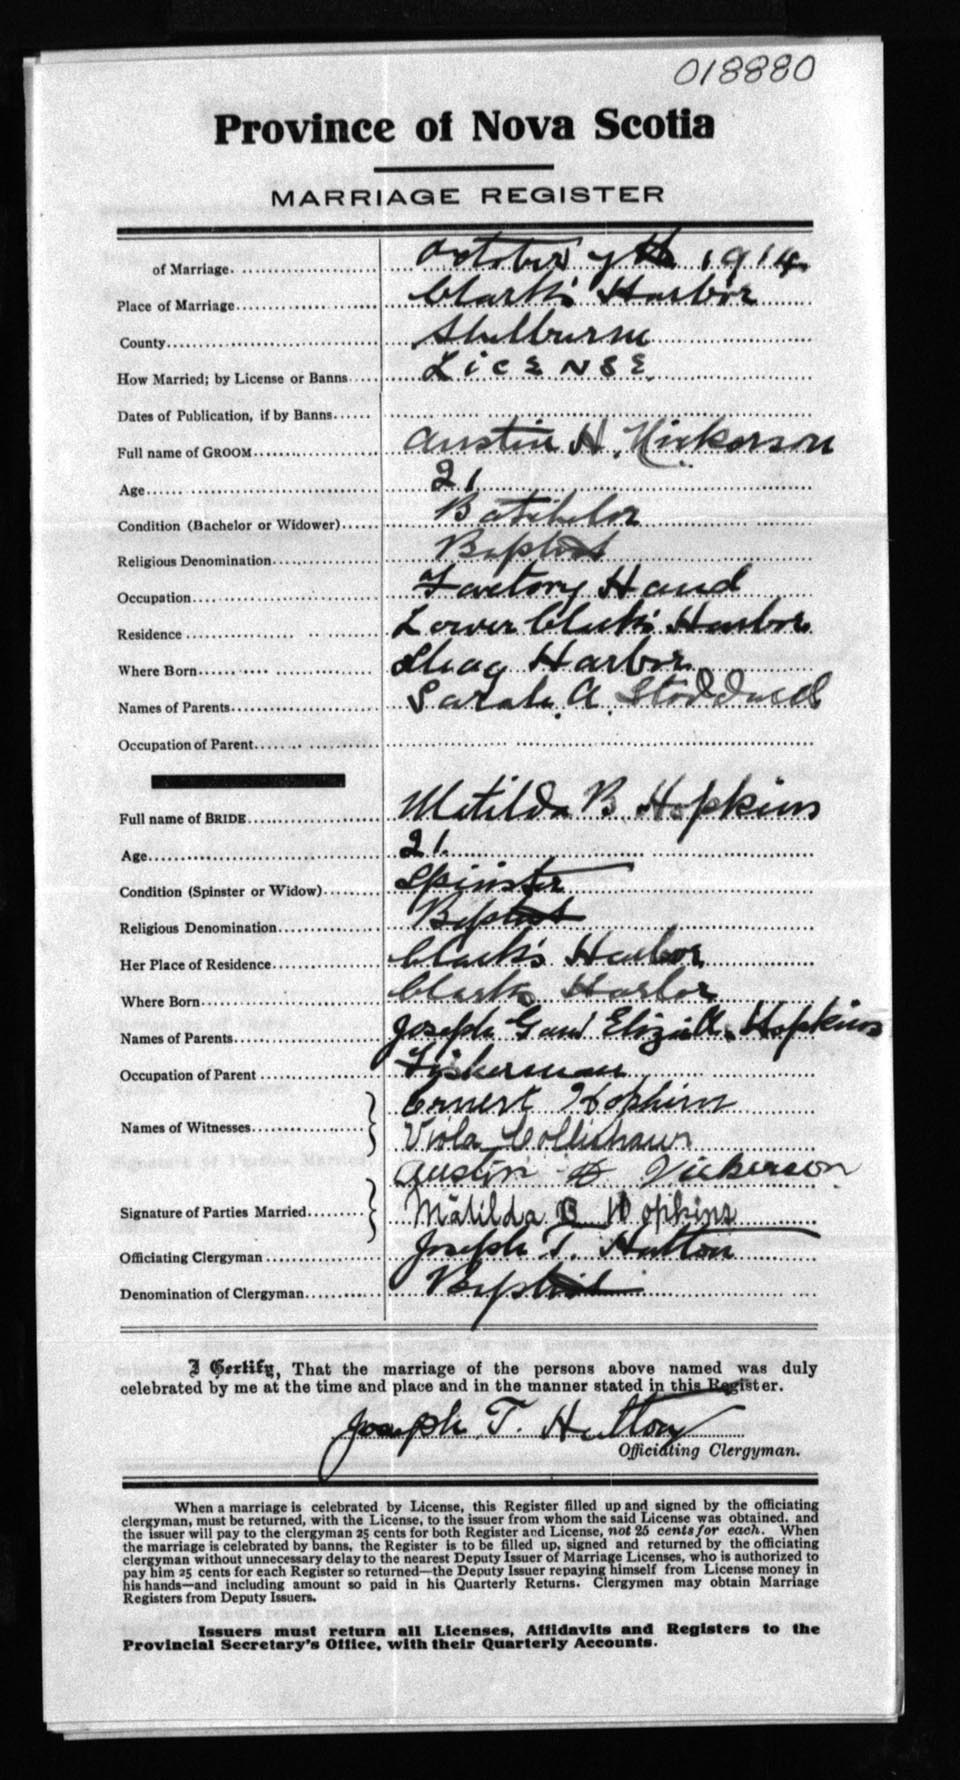 018880
Province of Nova Scotia
MARRIAGE REGISTER
of Marriage. October 7th 1914.
Place of Marriage Clark's Harbor
County Shelburne
How Married; by License or Banns LiCENSE
Dates of Publication, if by Banns
Full name of GROOM Austin H. Nickerson
Age 21
Condition (Bachelor or Widower) Batchelor
Religious Denomination Baptist
Occupation Factory Hand
Residence Lower Clark's Harbor
Where Born Shag Harbor
Names of Parents Sarah A. Stoddard
Occupation of Parent
Full name of BRIDE Matilda B Hopkins
Age 21
Condition (Spinster or Widow) Spinster
Religious Denomination Baptist
Her Place of Residence Clark's Harbor
Where Born Clarks Harbor
Names of Parents Joseph G and Eliza A. Hopkins
Occupation of Parent Fisherman
Names of Witnesses Ernest Hopkins
Viola
Austin H Nickerson
Signature of Parties Married Matilda B Hopkins
Officiating Clergyman Joseph T. Hutton
Denomination of Clergyman Baptist
I Certify, That the marriage of the persons above named was duly
celebrated by me at the time and place and in the manner stated in this Register.
Joseph T. Hutton
Officiating Clergyman.
When a marriage is celebrated by License, this Register filled up and signed by the officiating
clergyman, must be returned, with the License, to the issuer from whom the said License was obtained, and
the issuer will pay to the clergyman 25 cents for both Register and License, not 25 cents for each. When
the marriage is celebrated by banns, the Register is to be filled up, signed and returned by the officiating
clergyman without unnecessary delay to the nearest Deputy Issuer of Marriage Licenses, who is authorized to
pay him 25 cents for each Register so returned—the Deputy Issuer repaying himself from License money in
his hands—and including amount so paid in his Quarterly Returns. Clergymen may obtain Marriage
Registers from Deputy Issuers.
Issuers must return all Licenses, Affidavits and Registers to the
Provincial Secretary's Office, with their Quarterly Accounts.